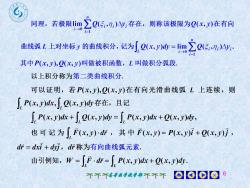 同理,若极限 lim_{λ→0} ∑_{i=1}^{n} Q(ξ_i,η_i)Δy_i 存在,则称该极限为Q(x,y)在有向
曲线弧 L 上对坐标 y 的曲线积分,记为∫_L Q(x,y)dy = lim_{λ→0} ∑_{i=1}^{n} Q(ξ_i,η_i)Δy_i.
其中 P(x,y),Q(x,y)叫做被积函数,L 叫做积分弧段.
以上积分称为第二类曲线积分.
可以证明,若P(x,y),Q(x,y)在有向光滑曲线弧 L 上连续,则
∫_L P(x,y)dx,∫_L Q(x,y)dy存在,且记
∫_L P(x,y)dx + ∫_L Q(x,y)dy = ∫_L P(x,y)dx + Q(x,y)dy,
也可记为 ∫_L F⃗(x,y)·dr⃗ ,其中 F⃗(x,y) = P(x,y)i⃗ + Q(x,y)j⃗ ,
dr⃗ = dxi⃗ + dyj⃗ ,dr⃗ 称为有向曲线弧元素.
由引例知,W = ∫_L F⃗·dr⃗ = ∫_L P(x,y)dx + Q(x,y)dy.
6